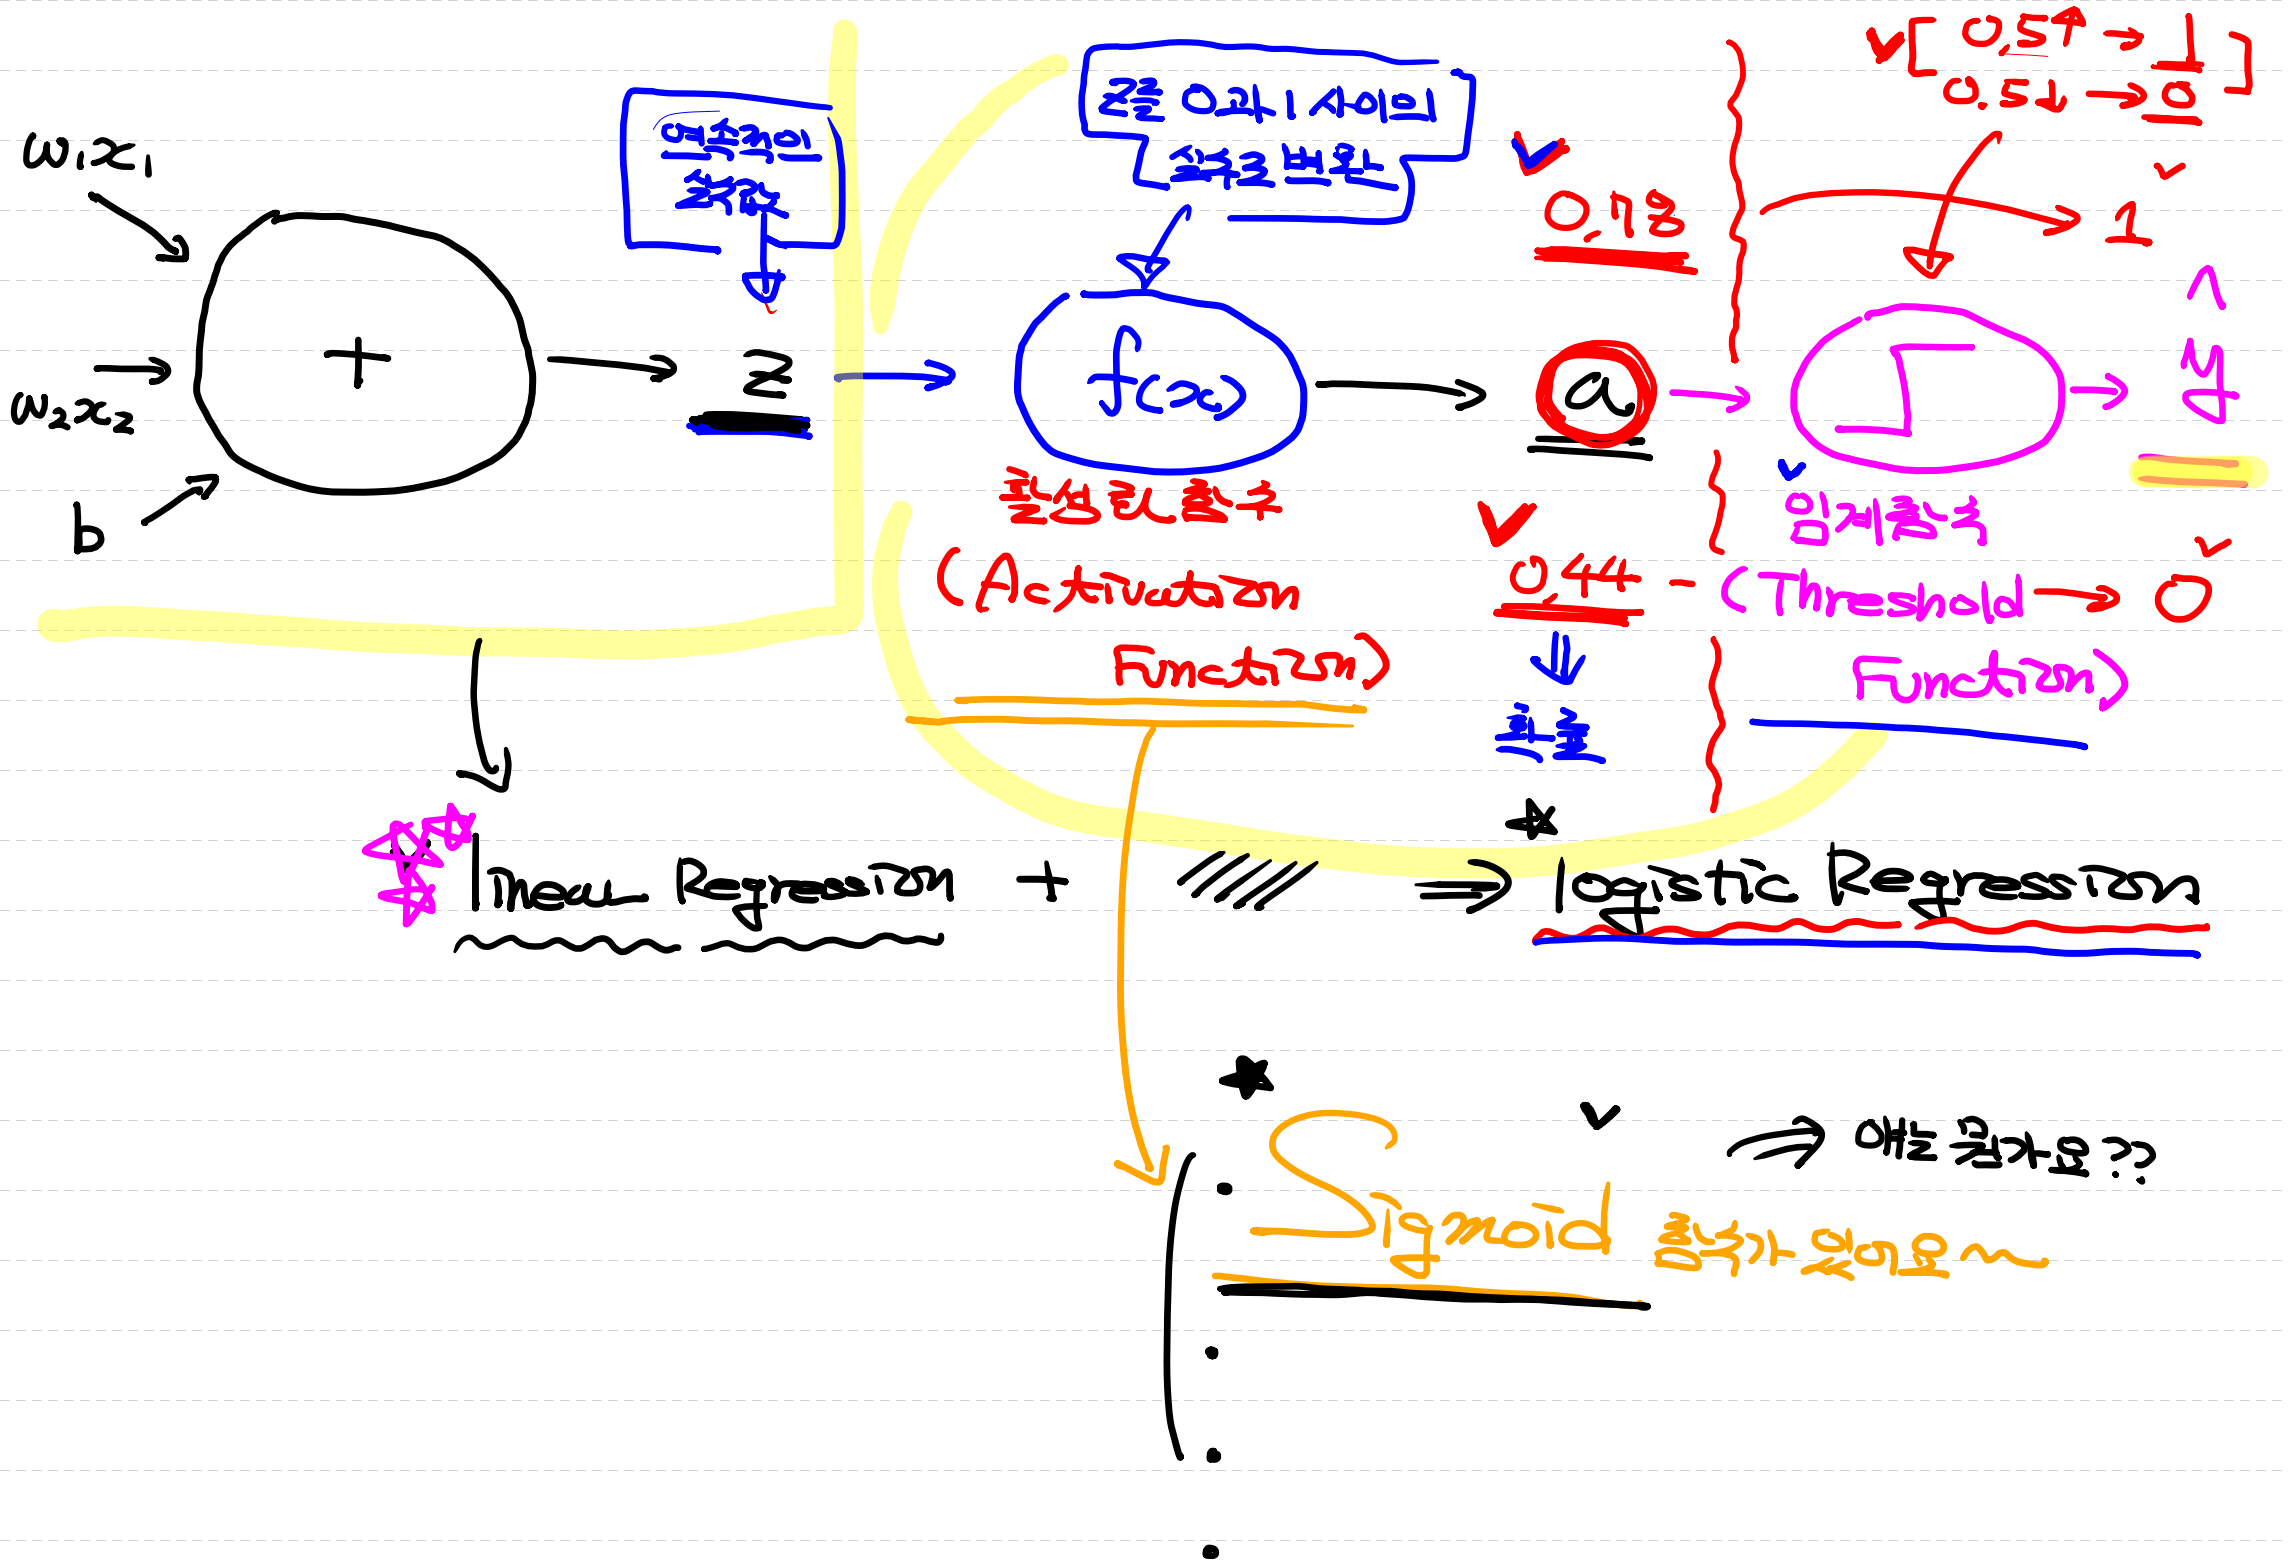 w₁x₁
w₂x₂
b
+
연속적인
출력값
z
z를 0과 1 사이의
실수로 변환
f(x)
활성화 함수
(Activation
Function)
0.78
a
0.44
확률
0.5↑ → 1
0.5↓ → 0
1
ŷ
임계함수
(Threshold
Function)
0
linear Regression + ⇒ logistic Regression
Sigmoid 함수가 있어요~
⇒ 얘는 뭔가요??